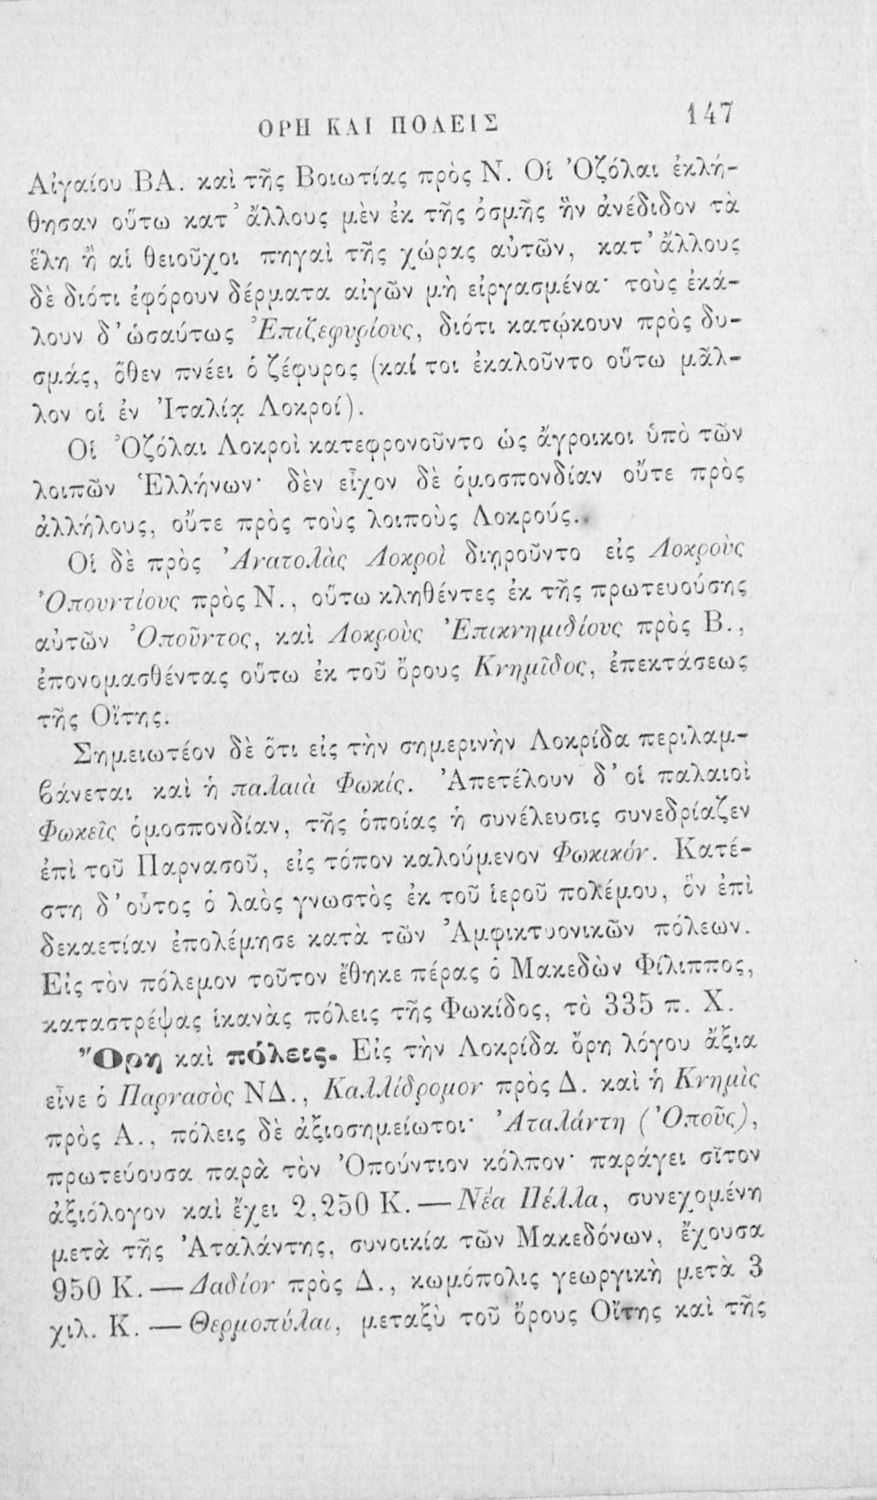 ΟΡΗ ΚΑΙ ΠΟΛΕΙΣ 147
Αἰγαίου ΒΑ. καὶ τῆς Βοιωτίας πρὸς Ν. Οἱ Ὀζόλαι ἐκλή-
θησαν οὕτω κατ’ ἄλλους μὲν ἐκ τῆς ὀσμῆς ἣν ἀνέδιδον τὰ
ἕλη ἢ αἱ θειοῦχοι πηγαὶ τῆς χώρας αὐτῶν, κατ’ ἄλλους
δὲ διότι ἐφόρουν δέρματα αἰγῶν μὴ εἰργασμένα· τοὺς ἐκά-
λουν δ’ ὡσαύτως Ἐπιζεφυρίους, διότι κατῴκουν πρὸς δυ-
σμάς, ὅθεν πνέει ὁ ζέφυρος (καί τοι ἐκαλοῦντο οὕτω μᾶλ-
λον οἱ ἐν Ἰταλίᾳ Λοκροί).
Οἱ Ὀζόλαι Λοκροὶ κατεφρονοῦντο ὡς ἄγροικοι ὑπὸ τῶν
λοιπῶν Ἑλλήνων· δὲν εἶχον δὲ ὁμοσπονδίαν οὔτε πρὸς
ἀλλήλους, οὔτε πρὸς τοὺς λοιποὺς Λοκρούς.
Οἱ δὲ πρὸς Ἀνατολὰς Λοκροὶ διῃροῦντο εἰς Λοκροὺς
Ὀπουντίους πρὸς Ν., οὕτω κληθέντες ἐκ τῆς πρωτευούσης
αὐτῶν Ὀποῦντος, καὶ Λοκροὺς Ἐπικνημιδίους πρὸς Β.,
ἐπονομασθέντας οὕτω ἐκ τοῦ ὄρους Κνημῖδος, ἐπεκτάσεως
τῆς Οἴτης.
Σημειωτέον δὲ ὅτι εἰς τὴν σημερινὴν Λοκρίδα περιλαμ-
βάνεται καὶ ἡ παλαιὰ Φωκίς. Ἀπετέλουν δ’ οἱ παλαιοὶ
Φωκεῖς ὁμοσπονδίαν, τῆς ὁποίας ἡ συνέλευσις συνεδρίαζεν
ἐπὶ τοῦ Παρνασοῦ, εἰς τόπον καλούμενον Φωκικόν. Κατέ-
στη δ’ οὗτος ὁ λαὸς γνωστὸς ἐκ τοῦ ἱεροῦ πολέμου, ὃν ἐπὶ
δεκαετίαν ἐπολέμησε κατὰ τῶν Ἀμφικτυονικῶν πόλεων.
Εἰς τὸν πόλεμον τοῦτον ἔθηκε πέρας ὁ Μακεδὼν Φίλιππος,
καταστρέψας ἱκανὰς πόλεις τῆς Φωκίδος, τὸ 335 π. Χ.
Ὄρη καὶ πόλεις. Εἰς τὴν Λοκρίδα ὄρη λόγου ἄξια
εἶνε ὁ Παρνασὸς ΝΔ., Καλλίδρομον πρὸς Δ. καὶ ἡ Κνημὶς
πρὸς Α., πόλεις δὲ ἀξιοσημείωτοι· Ἀταλάντη (Ὀποῦς),
πρωτεύουσα παρὰ τὸν Ὀπούντιον κόλπον· παράγει σῖτον
ἀξιόλογον καὶ ἔχει 2,250 Κ. — Νέα Πέλλα, συνεχομένη
μετὰ τῆς Ἀταλάντης, συνοικία τῶν Μακεδόνων, ἔχουσα
950 Κ. — Δαδίον πρὸς Δ., κωμόπολις γεωργικὴ μετὰ 3
χιλ. Κ. — Θερμοπύλαι, μεταξὺ τοῦ ὄρους Οἴτης καὶ τῆς